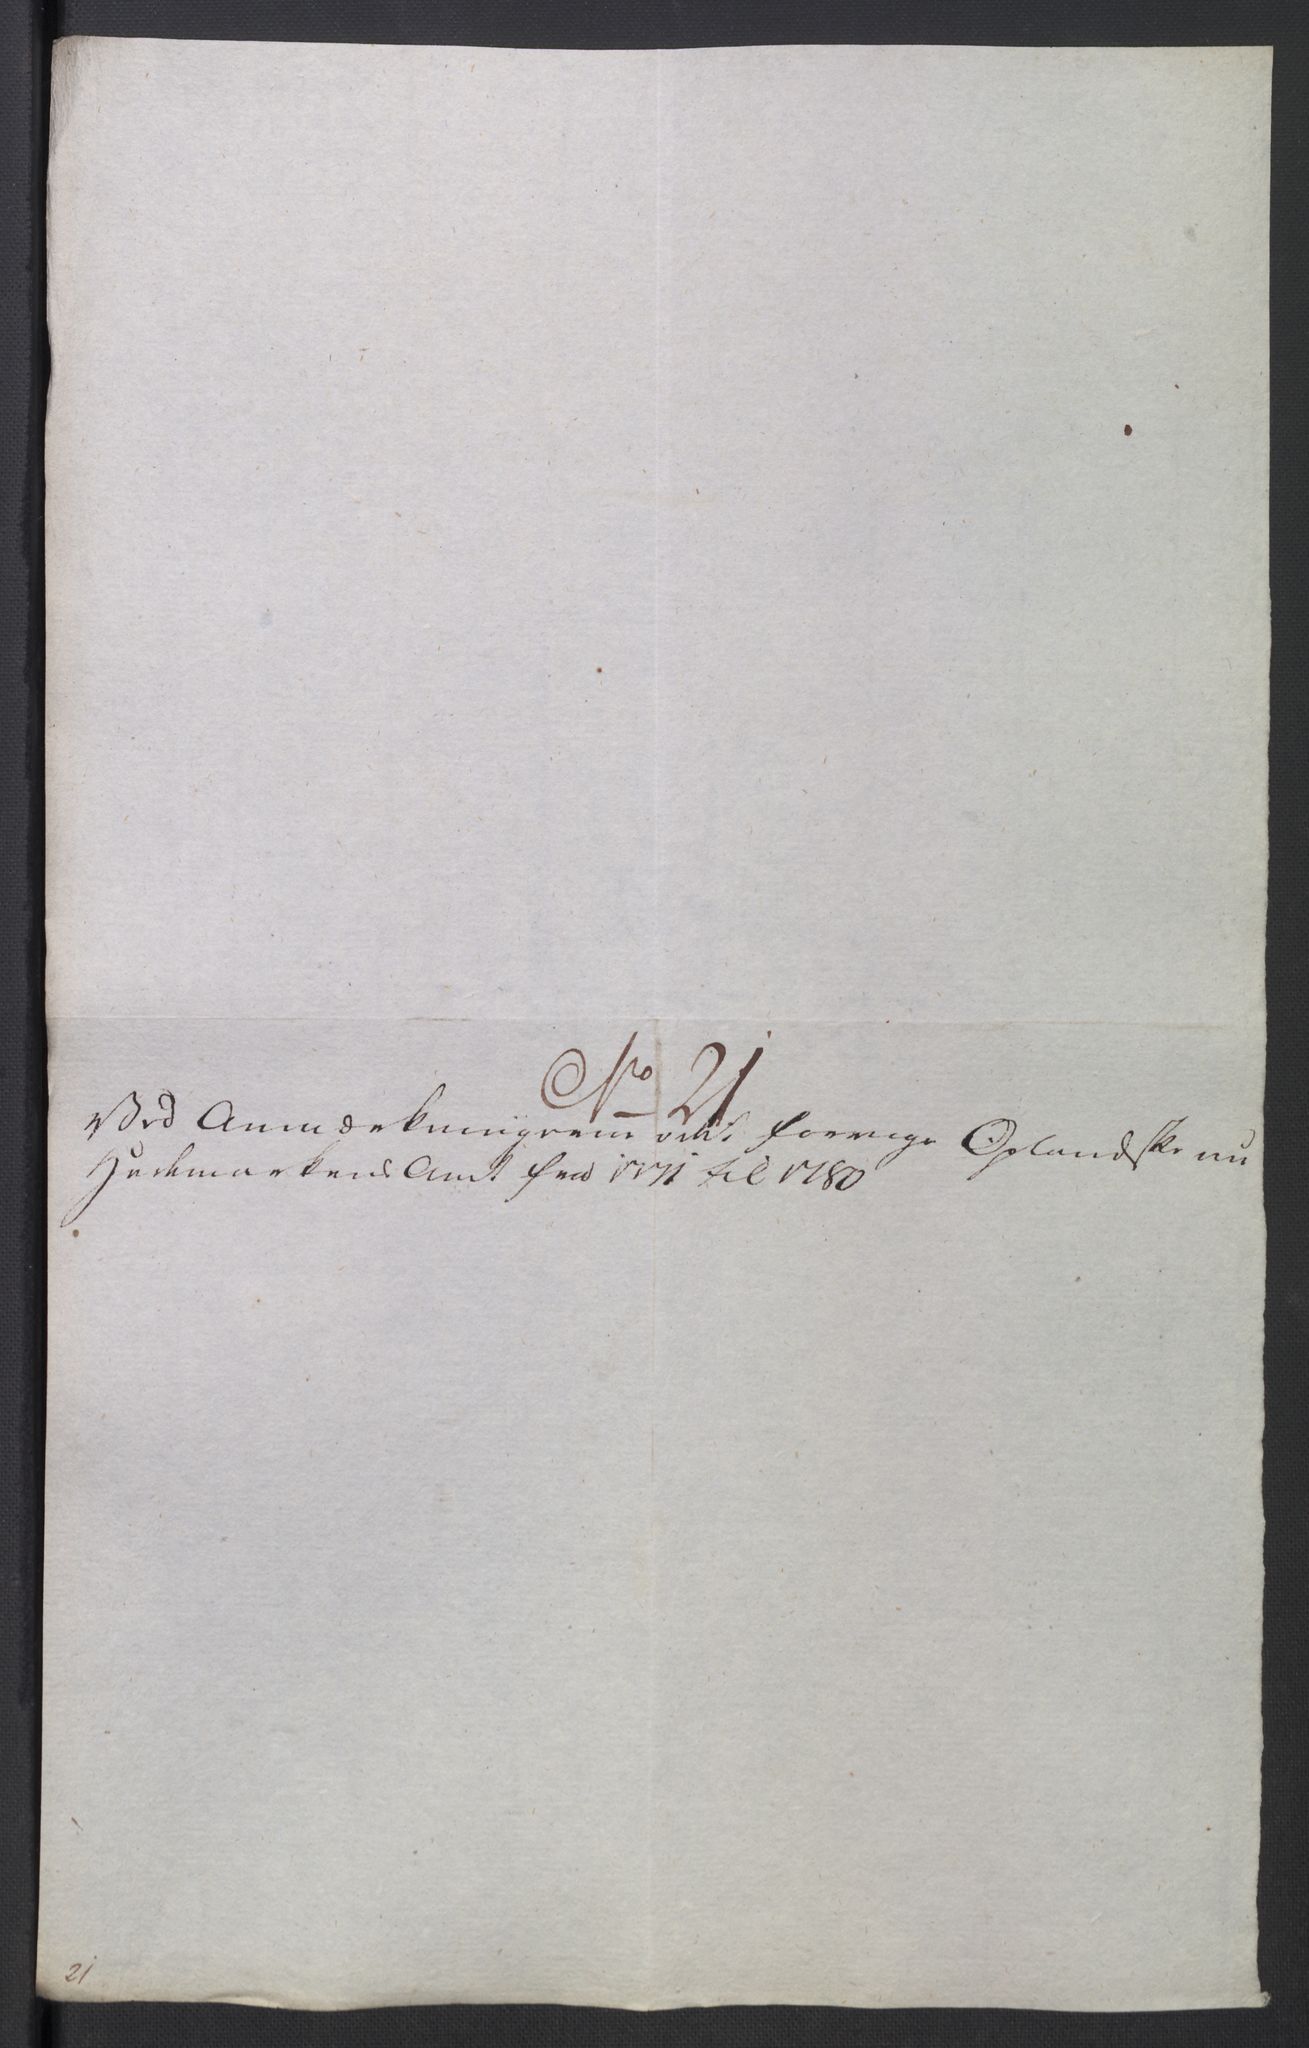 No 21
Ved Anmærkningerne vedk. forrige Oplandske nu
Hedemarkens Amt fra 1771 til 1780
21